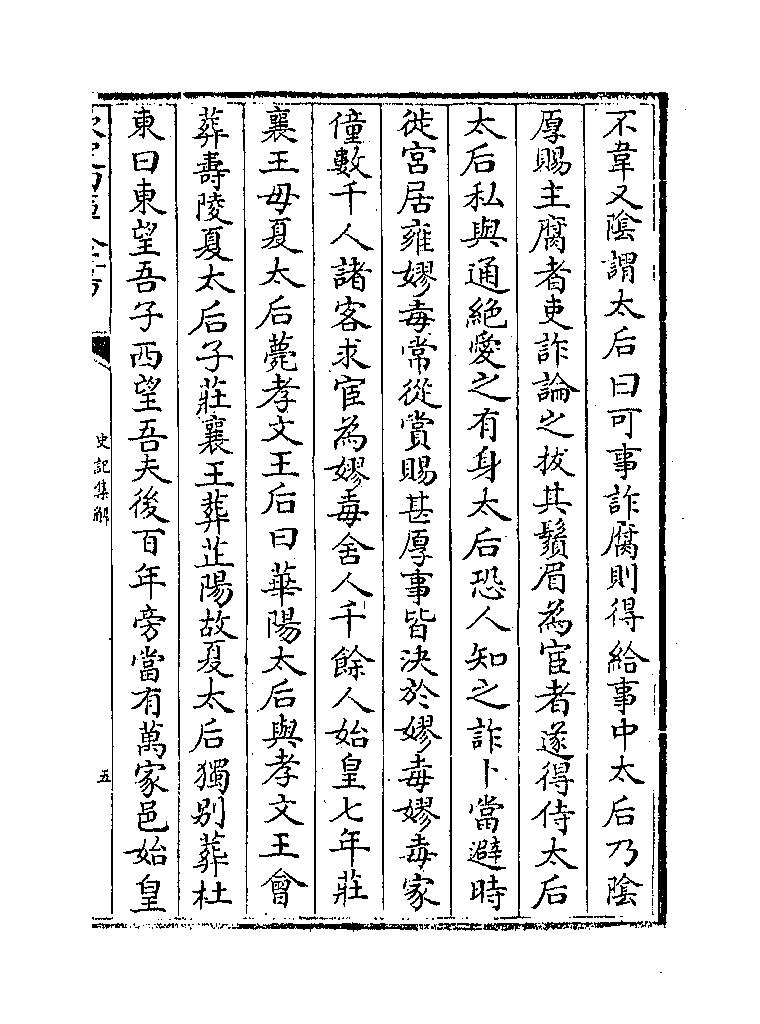 不韋又陰謂太后曰可事詐腐則得給事中太后乃陰
厚賜主腐者吏詐論之拔其鬚眉為宦者遂得侍太后
太后私與通絶愛之有身太后恐人知之詐卜當避時
徙宮居雍嫪毐常從賞賜甚厚事皆決於嫪毐嫪毐家
僮數千人諸客求宦為嫪毐舍人千餘人始皇七年莊
襄王母夏太后薨孝文王后曰華陽太后與孝文王會
葬壽陵夏太后子莊襄王葬芷陽故夏太后獨别葬杜
東曰東望吾子西望吾夫後百年旁當有萬家邑始皇
史記集解
五